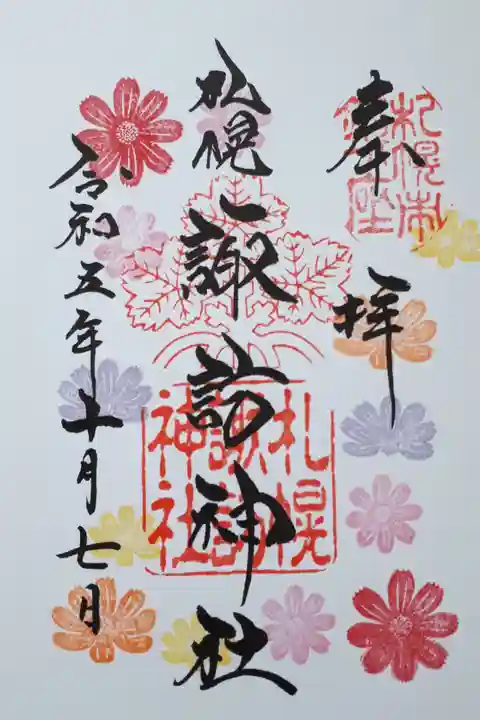 奉拝
札幌市鎮座
札幌諏訪神社
札幌諏訪神社
令和五年十月七日